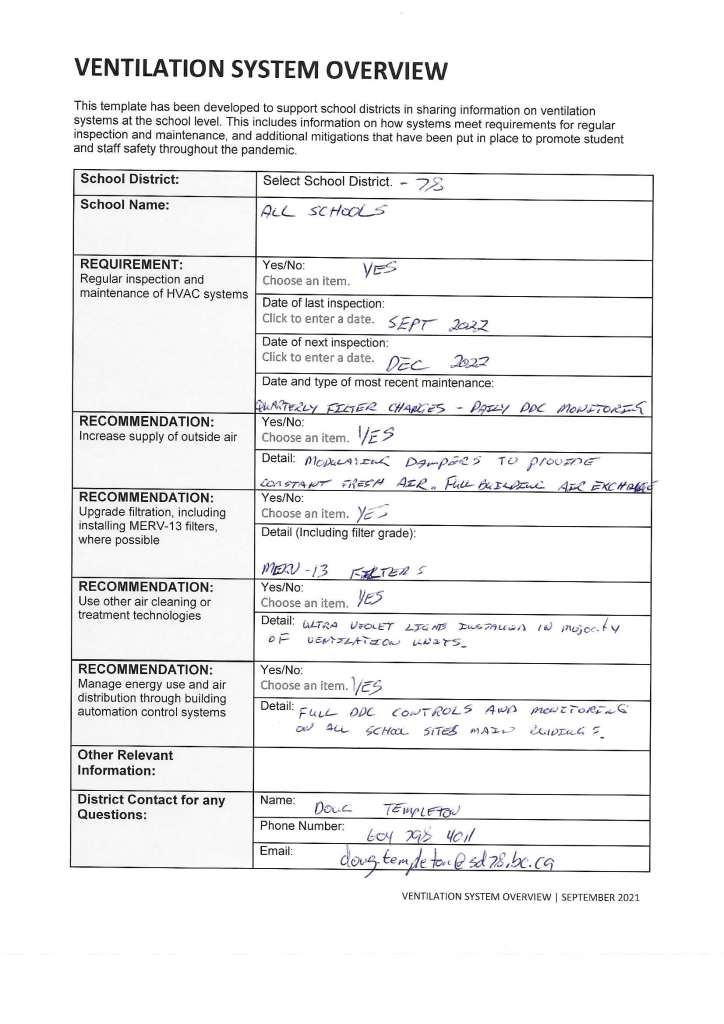 VENTILATION SYSTEM OVERVIEW
This template has been developed to support school districts in sharing information on ventilation
systems at the school level. This includes information on how systems meet requirements for regular
inspection and maintenance, and additional mitigations that have been put in place to promote student
and staff safety throughout the pandemic.
School District:
Select School District. - 78
School Name:
ALL SCHOOLS
REQUIREMENT:
Regular inspection and
maintenance of HVAC systems
Yes/No: YES
Choose an item.
Date of last inspection:
Click to enter a date. SEPT 2022
Date of next inspection:
Click to enter a date. DEC 2022
Date and type of most recent maintenance:
QUARTERLY FILTER CHANGES - DAILY DDC MONITORING
RECOMMENDATION:
Increase supply of outside air
Yes/No:
Choose an item. YES
Detail: MODULATING DAMPERS TO PROVIDE
CONSTANT FRESH AIR. FULL BUILDING AIR EXCHANGE
RECOMMENDATION:
Upgrade filtration, including
installing MERV-13 filters,
where possible
Yes/No:
Choose an item. YES
Detail (Including filter grade):
MERV-13 FILTERS
RECOMMENDATION:
Use other air cleaning or
treatment technologies
Yes/No:
Choose an item. YES
Detail: ULTRA VIOLET LIGHTS INSTALLED IN MAJORITY
OF VENTILATION UNITS.
RECOMMENDATION:
Manage energy use and air
distribution through building
automation control systems
Yes/No:
Choose an item. YES
Detail: FULL DDC CONTROLS AND MONITORING
ON ALL SCHOOL SITES MAIN BUILDINGS.
Other Relevant
Information:
District Contact for any
Questions:
Name: DOUG TEMPLETON
Phone Number: 604 798 4011
Email: doug.templeton@sd78.bc.ca
VENTILATION SYSTEM OVERVIEW | SEPTEMBER 2021